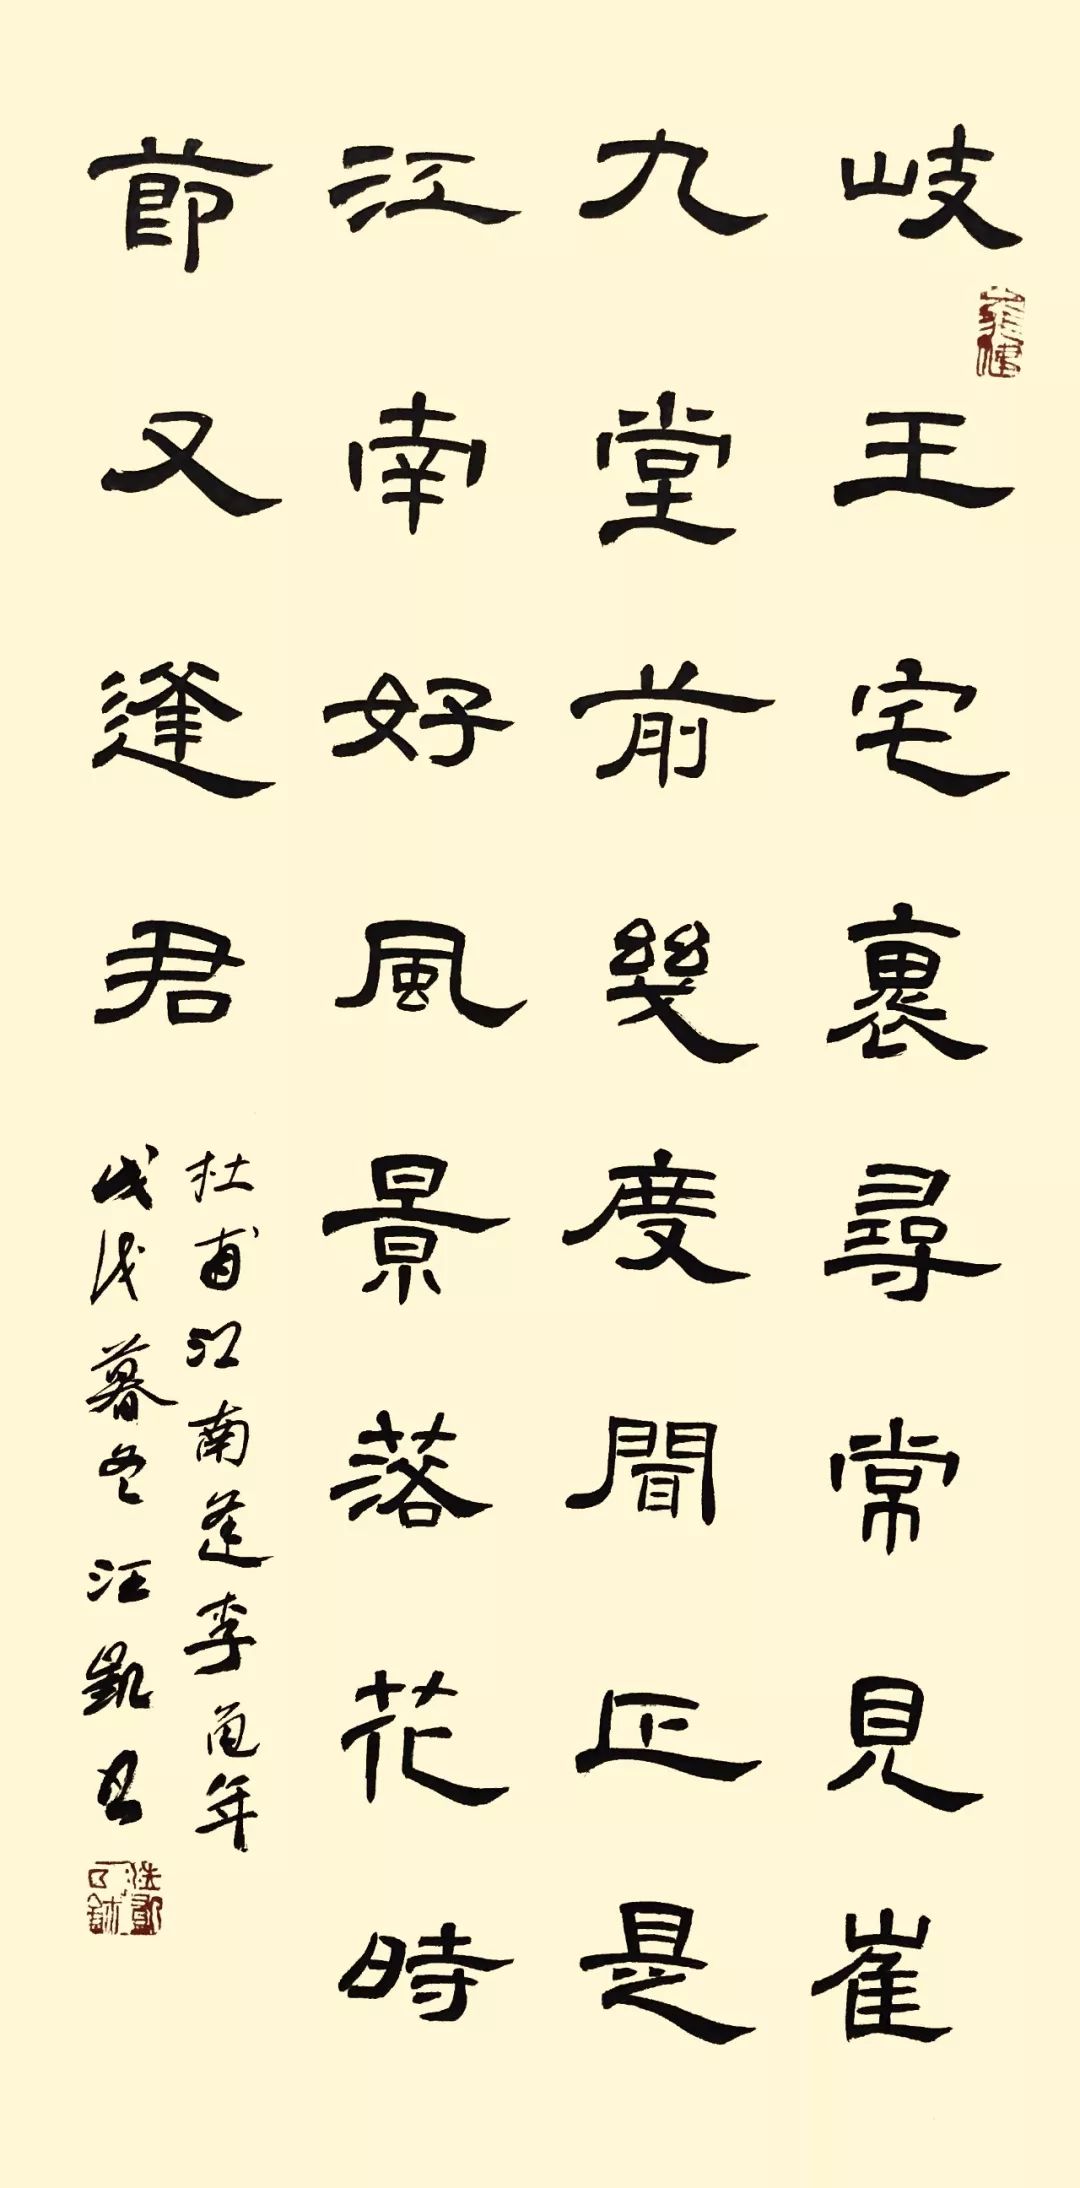 岐王宅裏尋常見崔
九堂前幾度聞正是
江南好風景落花時
節又逢君
杜甫江南逢李龟年
戊戌暮冬汪凱書